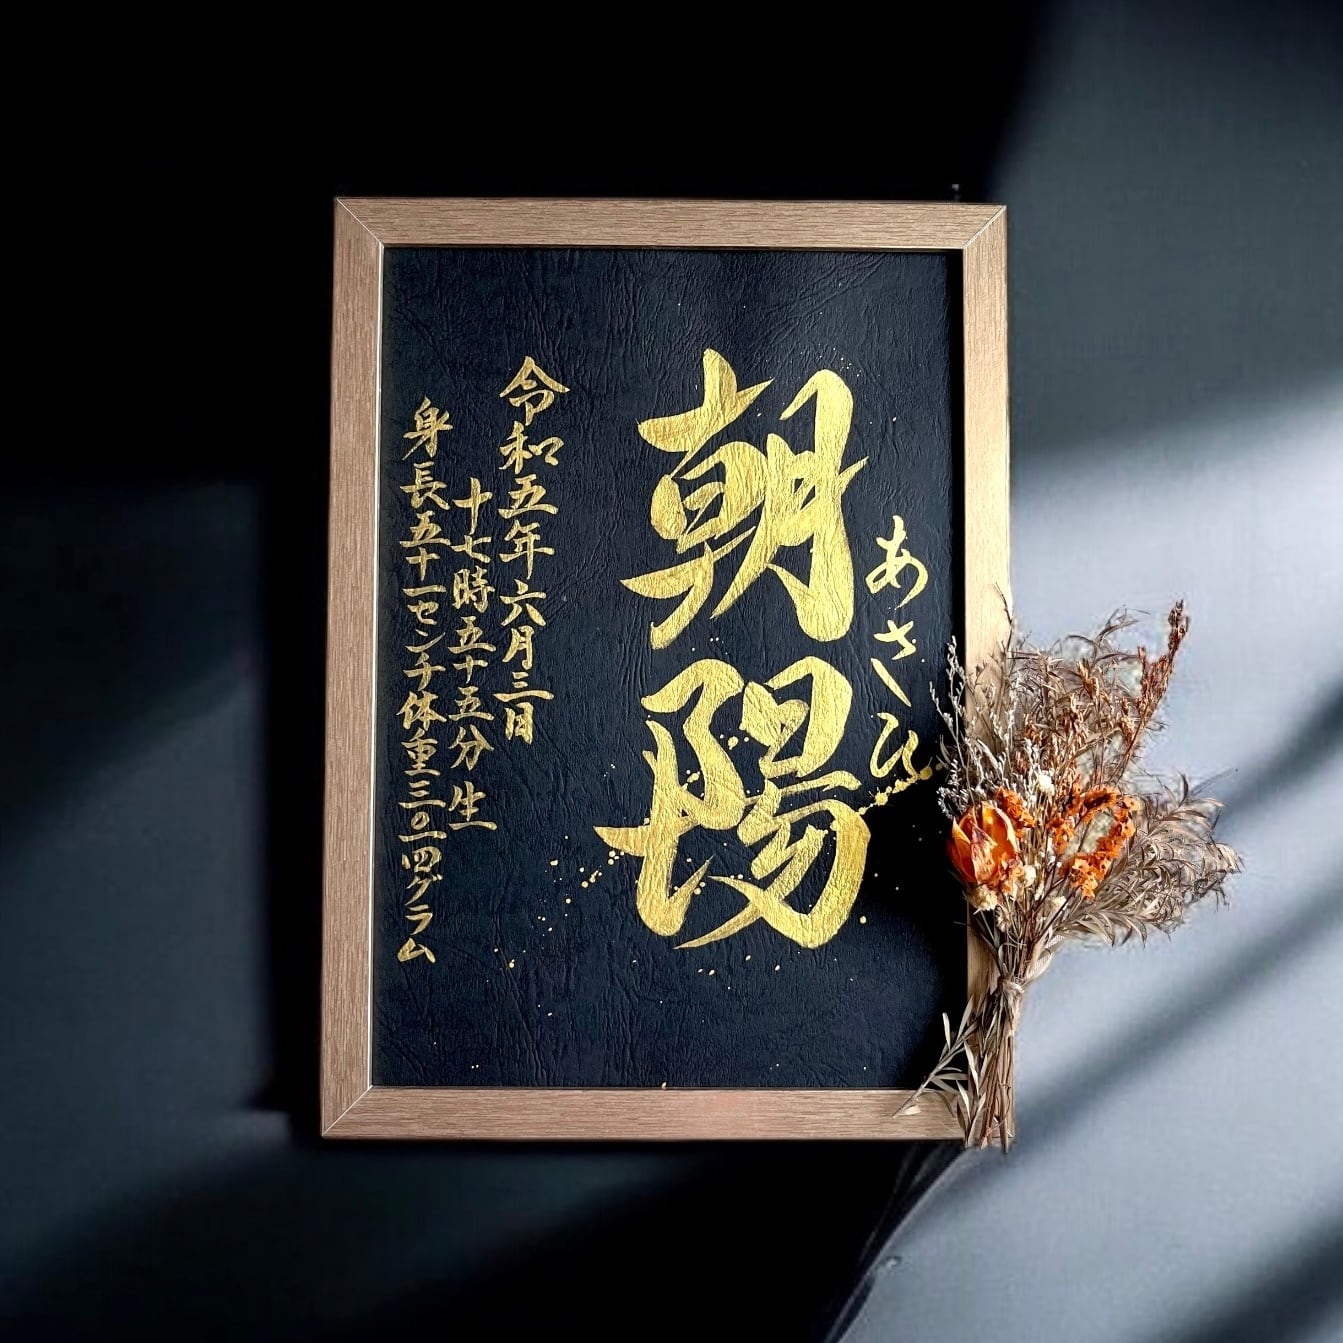 あさひ
朝陽
令和五年六月三日
十七時五十五分生
身長五十一センチ体重三〇一四グラム